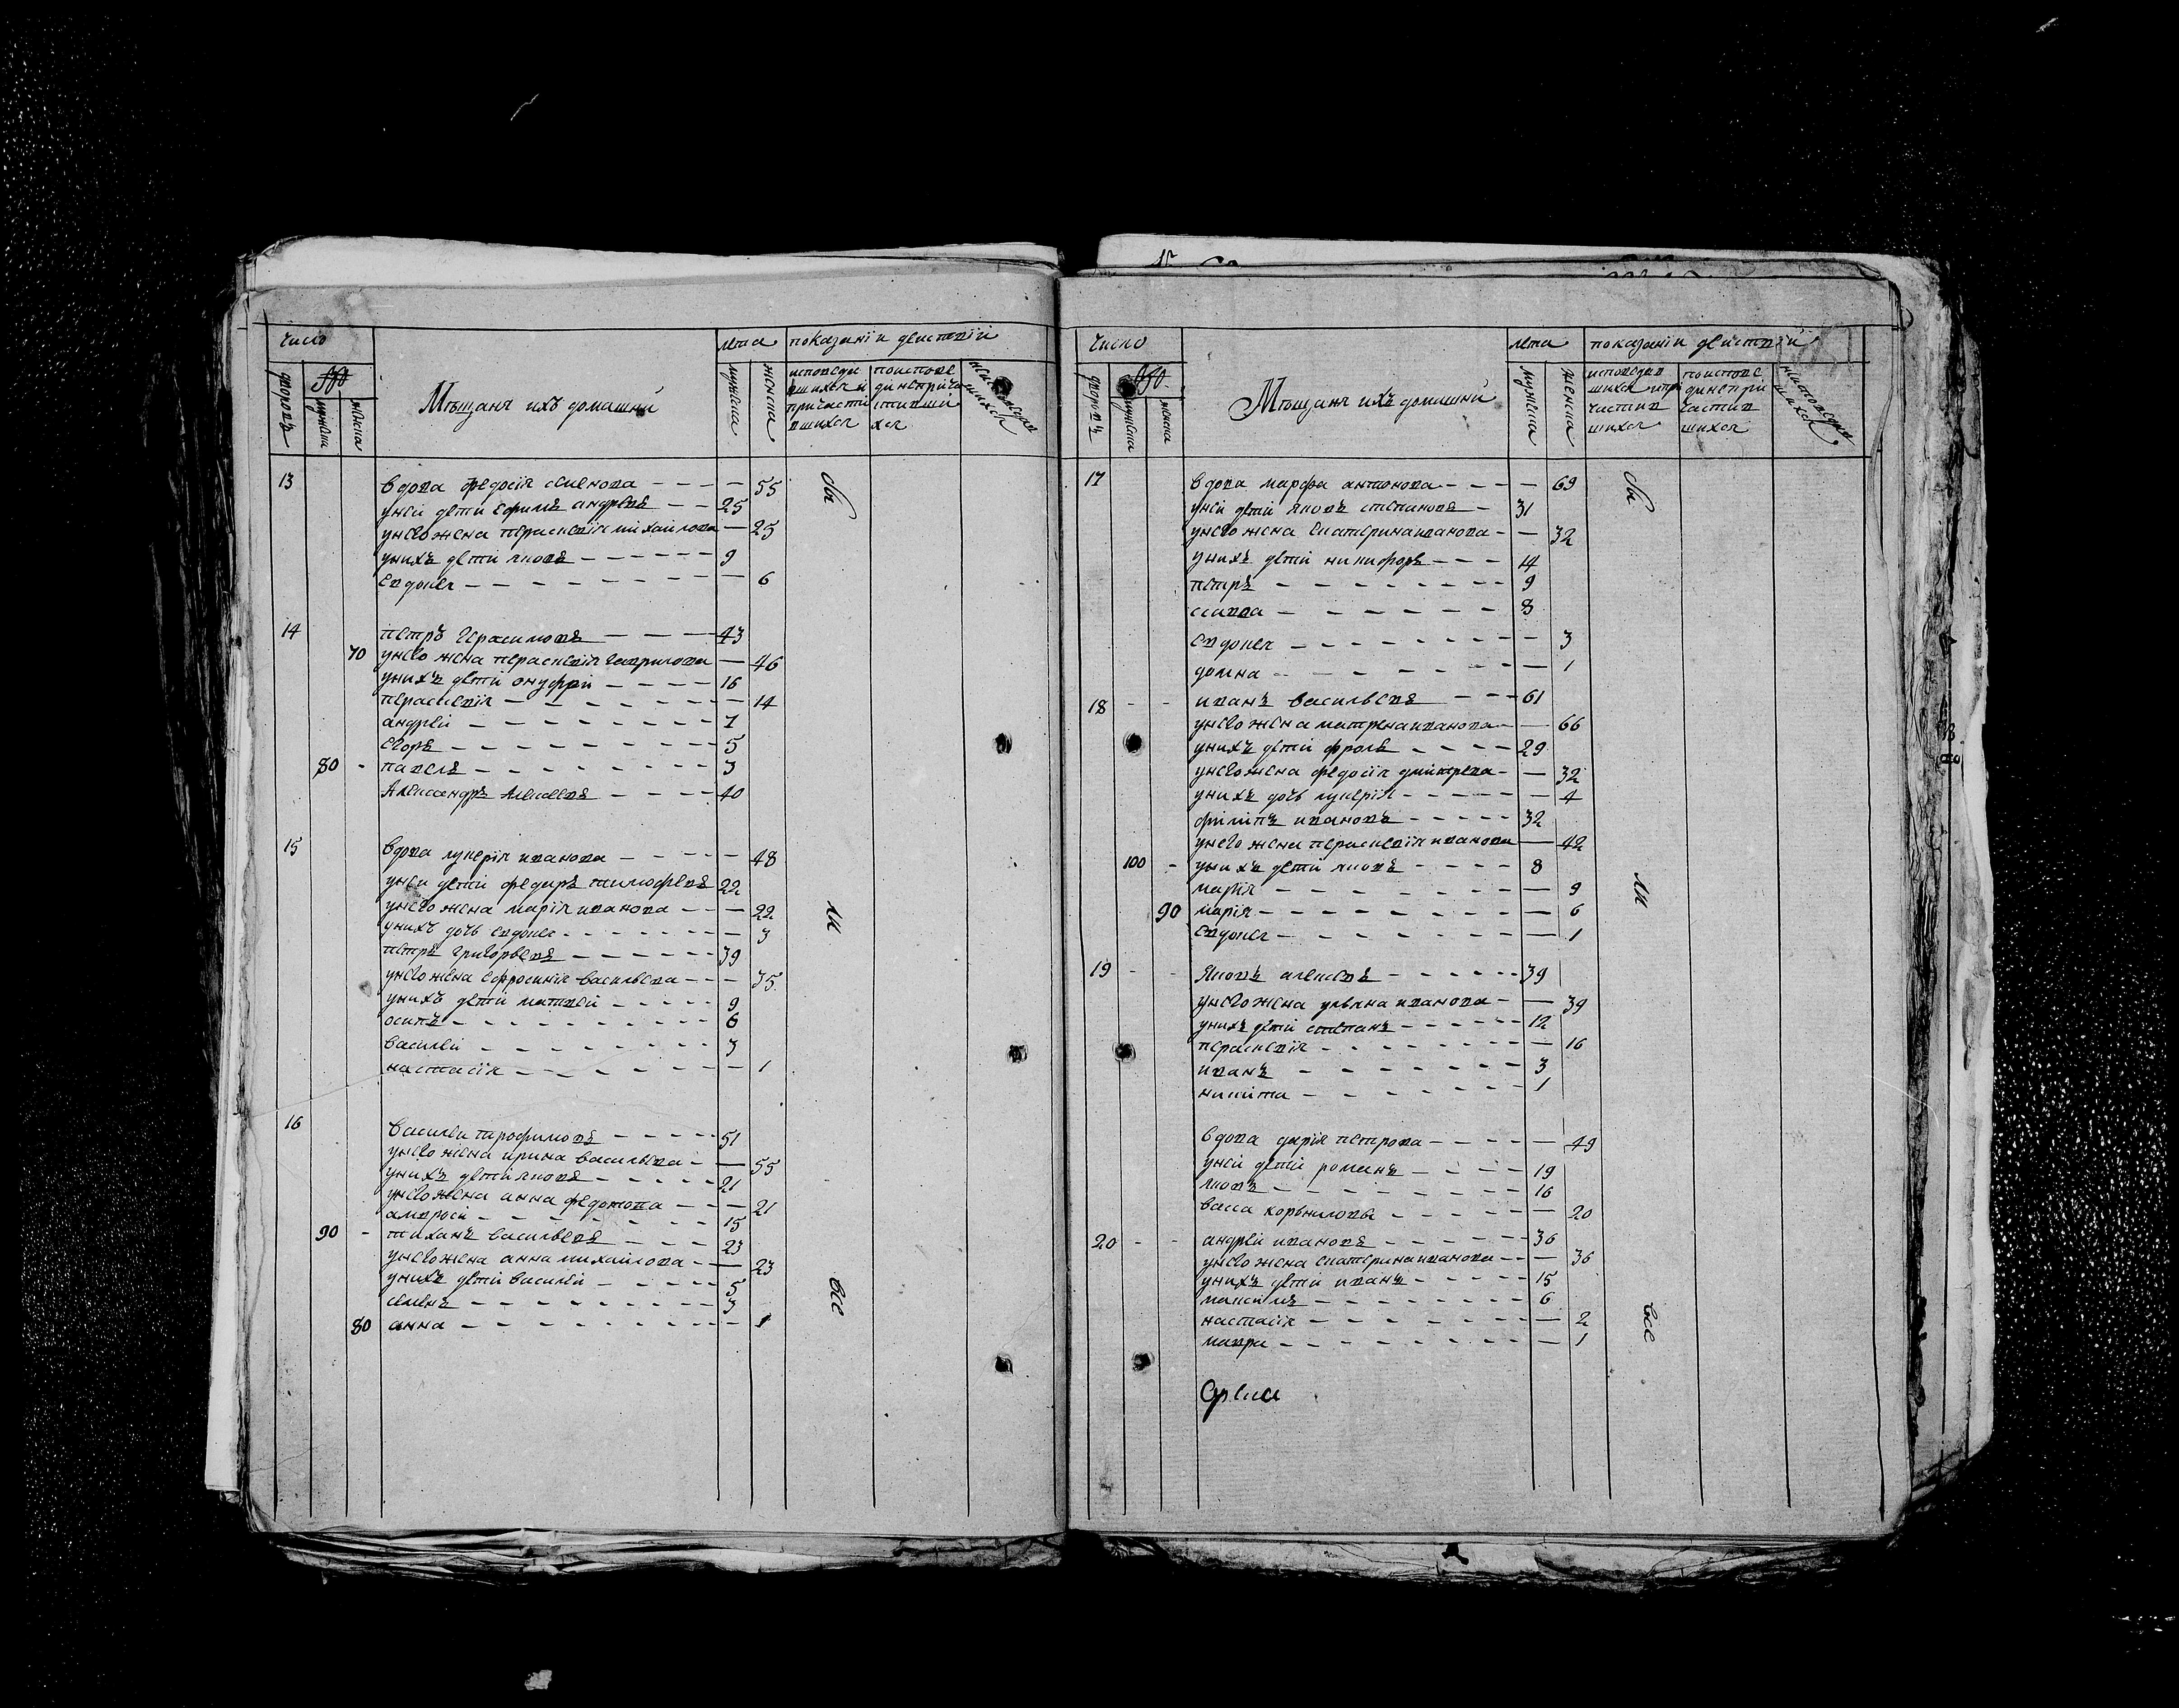 число
лета показаніи деиствіи
дворовъ
мужска
женска
Мѣщанъ ихъ домашни
мужска
женска
исповеда
вшихся и
причасти
вшихся
поисповe
ди неприча
стивши
хся
13 вдова федосія семенова — 55
унеи дети ефимъ андревъ 25
унево жена парасковія михаилова — 25
унихъ дети яковъ 9
евдокея — 6
14 петръ герасимовъ 43
70 унево жена парасковія гаврилова — 46
унихъ дети онуфреи 16
парасковія — 14
андреи 7
егоръ 5
80 - павелъ 3
Александръ Алексеевъ 40
15 вдова лукерія иванова — 48
унеи дети федоръ тимофеевъ 22
унево жена марія иванова — 22
унихъ дочь евдокея — 3
петръ григорьевъ 39
унево жена ефросинія васильева — 35
унихъ дети матвеи 9
осипъ 6
василеи 3
настасія — 1
16 василеи трофимовъ 51
унево жена ирина васильева — 55
унихъ дети яковъ 21
унево жена анна федотова — 21
амвроси 15
90 - тиханъ васильевъ 23
унево жена анна михаилова — 23
унихъ дети василеи 5
семенъ 3
80 анна — 1
сы
ли
все
число
лета показаніи деиствіи
дворовъ
мужска
женска
Мѣщанъ ихъ домашни
мужска
женска
исповедав
шихся ипри
частив
шихся
поисповe
ди непри
частив
шихся
17 вдова марфа антонова — 69
унеи дети яковъ степановъ 31
унево жена екатерина иванова — 32
унихъ дети никифоръ 14
петръ 9
савва 8
евдокея — 3
домна — 1
18 - - иванъ васильевъ 61
унево жена матрена иванова — 66
унихъ дети фролъ 29
унево жена федосія дмитрева — 32
унихъ дочь лукерія — 4
филипъ ивановъ 32
унево жена парасковія иванова — 42
100 - унихъ дети яковъ 8
марія — 9
90 марія — 6
евдокея — 1
19 - - Яковъ алексевъ 39
унево жена ульяна иванова — 39
унихъ дети степанъ 12
парасковія — 16
иванъ 3
никита 1
вдова дарія петрова — 49
унеи дети романъ 19
яковъ 16
васса корьнилова — 20
20 - - андреи ивановъ 36
унево жена екатерина иванова — 36
унихъ дети иванъ 15
максимъ 6
настасія — 2
мавра — 1
сы
ли
все